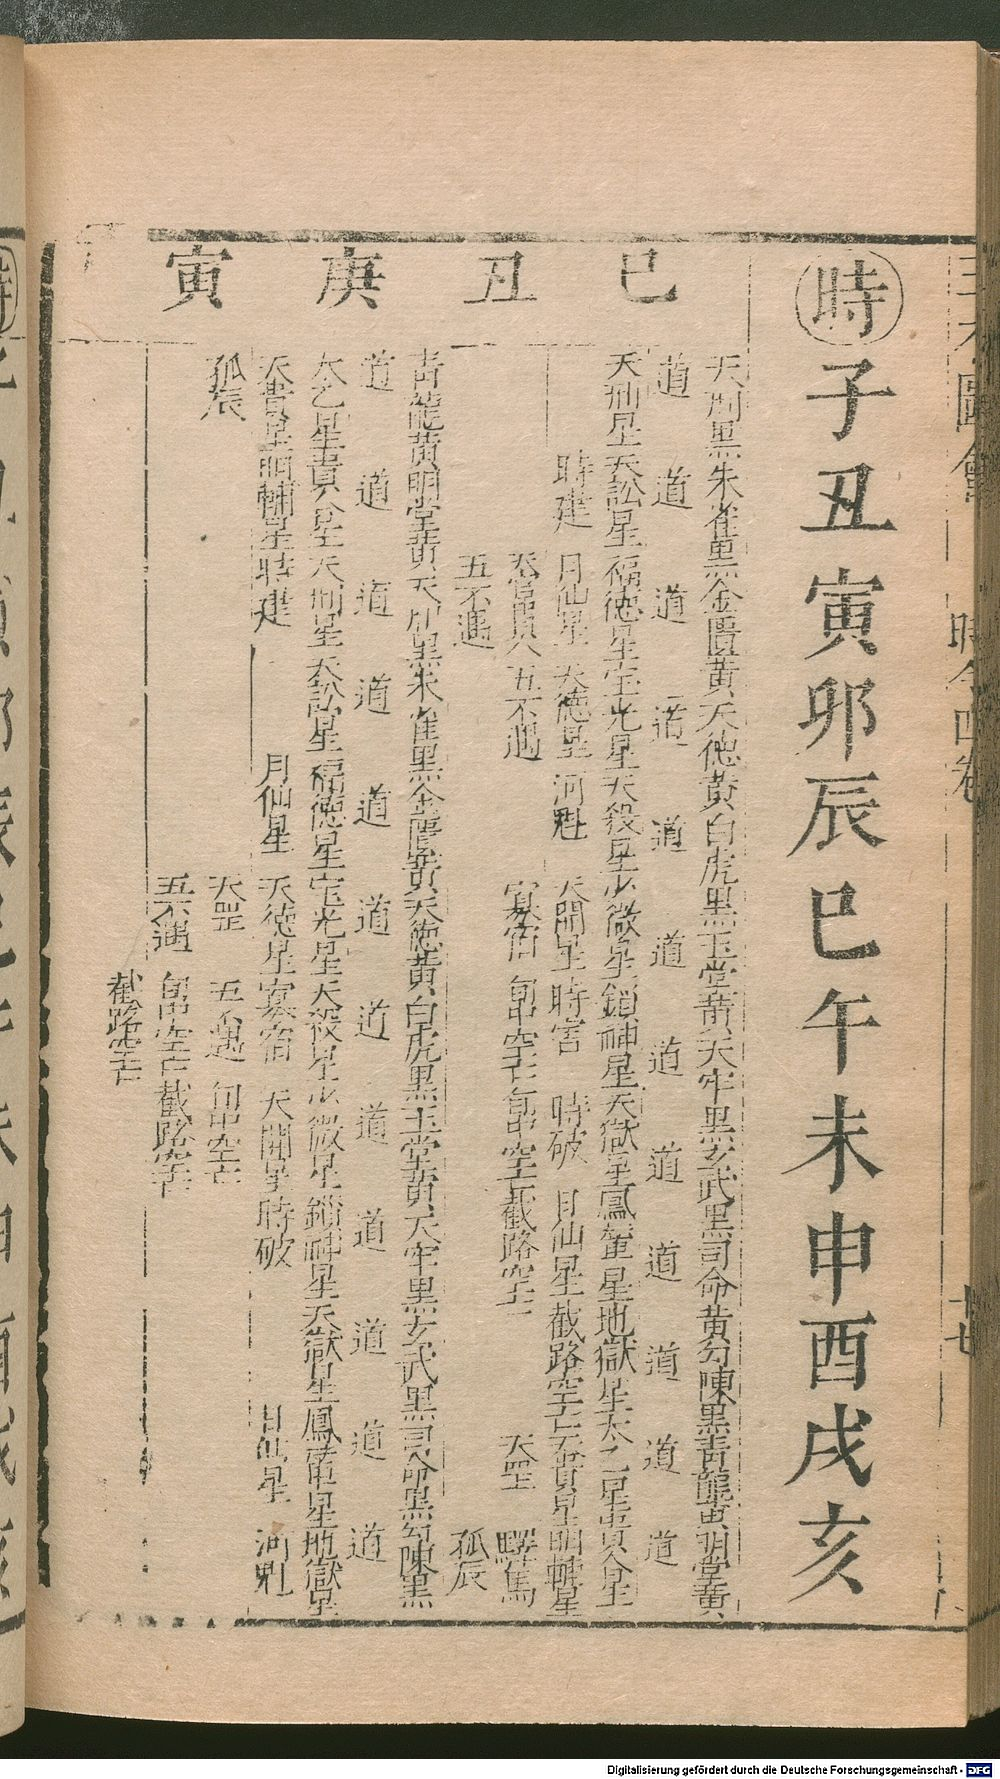 時令四卷
時子丑寅卯辰巳午未申酉戌亥
己丑
天刑黑朱雀黑金匱黃天德黃白虎黑玉堂黃天牢黑玄武黑司命黃勾陳黑青龍黃明堂黃
道道道道道道道道道道道道
天刑星天訟星福德星宝光星天殺星少微星鎖神星天獄星鳳輦星地獄星太乙星貴人星
時建 月仙星 天德星 河魁 天開星 時害 時破 月仙星 截路空亡天貴星明輔星
天官貴人五不遇 寡宿 旬中空亡旬中空亡截路空亡 天罡 驛馬
五不遇 孤辰
庚寅
青龍黃明堂黃天刑黑朱雀黑金匱黃天德黃白虎黑玉堂黃天牢黑玄武黑司命黑勾陳黑
道道道道道道道道道道道道
太乙星貴人星天刑星天訟星福德星宝光星天殺星少微星鎖神星天獄星鳳輦星地獄星
天貴星明輔星時建 月仙星 天德星寡宿 天開星時破 月仙星 河魁
孤辰 天罡 五不遇 旬中空亡
五不遇 旬中空亡截路空亡
截路空亡
Digitalisierung gefördert durch die Deutsche Forschungsgemeinschaft - DFG